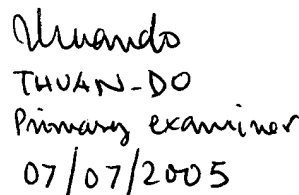 THUAN-DO
Primary examiner
07/07/2005